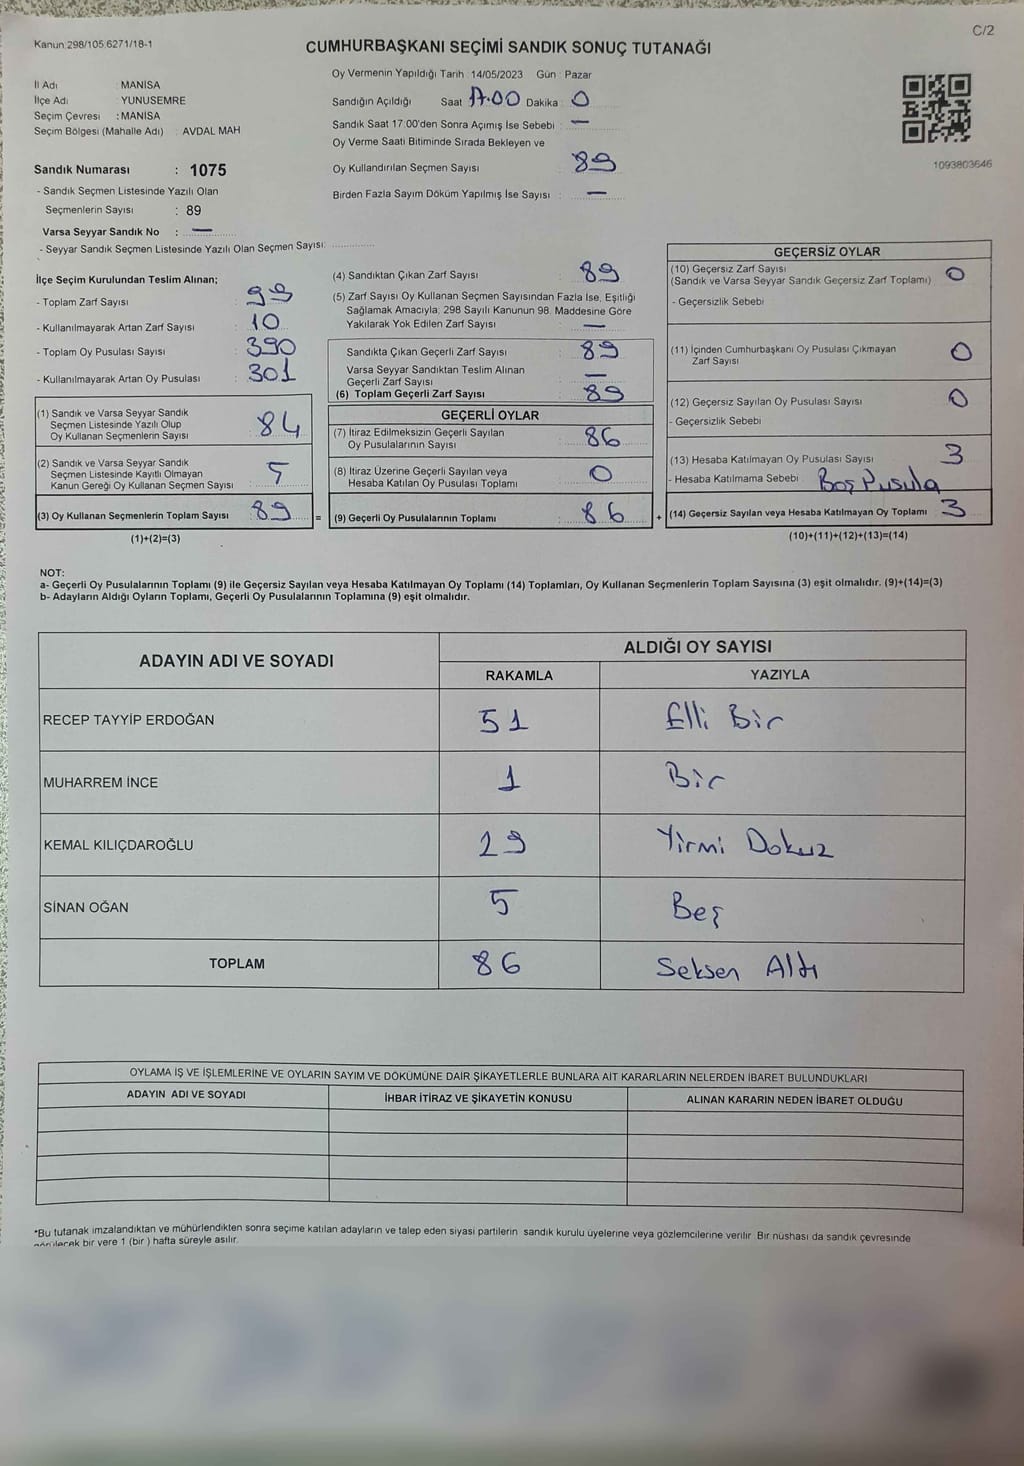 C/2
Kanun:298/105.6271/18-1
CUMHURBAŞKANI SEÇİMİ SANDIK SONUÇ TUTANAĞI
İl Adı : MANİSA
İlçe Adı : YUNUSEMRE
Seçim Çevresi : MANİSA
Seçim Bölgesi (Mahalle Adı) : AVDAL MAH
Sandık Numarası : 1075
- Sandık Seçmen Listesinde Yazılı Olan
Seçmenlerin Sayısı : 89
Varsa Seyyar Sandık No : —
- Seyyar Sandık Seçmen Listesinde Yazılı Olan Seçmen Sayısı:
Oy Vermenin Yapıldığı Tarih : 14/05/2023 Gün : Pazar
Sandığın Açıldığı Saat 17.00 Dakika : 0
Sandık Saat 17:00'den Sonra Açımış İse Sebebi : —
Oy Verme Saati Bitiminde Sırada Bekleyen ve
Oy Kullandırılan Seçmen Sayısı : 89
Birden Fazla Sayım Döküm Yapılmış İse Sayısı : —
1093803646
İlçe Seçim Kurulundan Teslim Alınan;
- Toplam Zarf Sayısı : 99
- Kullanılmayarak Artan Zarf Sayısı : 10
- Toplam Oy Pusulası Sayısı : 390
- Kullanılmayarak Artan Oy Pusulası : 301
(1) Sandık ve Varsa Seyyar Sandık
Seçmen Listesinde Yazılı Olup
Oy Kullanan Seçmenlerin Sayısı : 84
(2) Sandık ve Varsa Seyyar Sandık
Seçmen Listesinde Kayıtlı Olmayan
Kanun Gereği Oy Kullanan Seçmen Sayısı : 5
(3) Oy Kullanan Seçmenlerin Toplam Sayısı : 89 =
(1)+(2)=(3)
(4) Sandıktan Çıkan Zarf Sayısı : 89
(5) Zarf Sayısı Oy Kullanan Seçmen Sayısından Fazla İse, Eşitliği
Sağlamak Amacıyla; 298 Sayılı Kanunun 98. Maddesine Göre
Yakılarak Yok Edilen Zarf Sayısı : —
Sandıkta Çıkan Geçerli Zarf Sayısı : 89
Varsa Seyyar Sandıktan Teslim Alınan
Geçerli Zarf Sayısı : —
(6) Toplam Geçerli Zarf Sayısı : 89
GEÇERLİ OYLAR
(7) İtiraz Edilmeksizin Geçerli Sayılan
Oy Pusulalarının Sayısı : 86
(8) İtiraz Üzerine Geçerli Sayılan veya
Hesaba Katılan Oy Pusulası Toplamı : 0
(9) Geçerli Oy Pusulalarının Toplamı : 86 +
GEÇERSİZ OYLAR
(10) Geçersiz Zarf Sayısı
(Sandık ve Varsa Seyyar Sandık Geçersiz Zarf Toplamı) : 0
- Geçersizlik Sebebi :
(11) İçinden Cumhurbaşkanı Oy Pusulası Çıkmayan
Zarf Sayısı : 0
(12) Geçersiz Sayılan Oy Pusulası Sayısı : 0
- Geçersizlik Sebebi :
(13) Hesaba Katılmayan Oy Pusulası Sayısı : 3
- Hesaba Katılmama Sebebi : Boş Pusula
(14) Geçersiz Sayılan veya Hesaba Katılmayan Oy Toplamı : 3
(10)+(11)+(12)+(13)=(14)
NOT:
a- Geçerli Oy Pusulalarının Toplamı (9) ile Geçersiz Sayılan veya Hesaba Katılmayan Oy Toplamı (14) Toplamları, Oy Kullanan Seçmenlerin Toplam Sayısına (3) eşit olmalıdır. (9)+(14)=(3)
b- Adayların Aldığı Oyların Toplamı, Geçerli Oy Pusulalarının Toplamına (9) eşit olmalıdır.
ADAYIN ADI VE SOYADI ALDIĞI OY SAYISI
RAKAMLA YAZIYLA
RECEP TAYYİP ERDOĞAN 51 Elli Bir
MUHARREM İNCE 1 Bir
KEMAL KILIÇDAROĞLU 29 Yirmi Dokuz
SİNAN OĞAN 5 Beş
TOPLAM 86 Seksen Altı
OYLAMA İŞ VE İŞLEMLERİNE VE OYLARIN SAYIM VE DÖKÜMÜNE DAİR ŞİKAYETLERLE BUNLARA AİT KARARLARIN NELERDEN İBARET BULUNDUKLARI
ADAYIN ADI VE SOYADI İHBAR İTİRAZ VE ŞİKAYETİN KONUSU ALINAN KARARIN NEDEN İBARET OLDUĞU
*Bu tutanak imzalandıktan ve mühürlendikten sonra seçime katılan adayların ve talep eden siyasi partilerin sandık kurulu üyelerine veya gözlemcilerine verilir. Bir nüshası da sandık çevresinde
görülecek bir yere 1 (bir) hafta süreyle asılır.